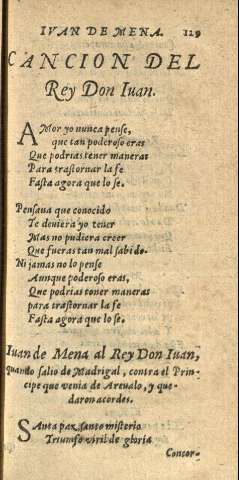 IVAN DE MENA. 119
CANCION DEL
Rey Don Iuan.
AMor yo nunca pense,
que tan poderoso eras
Que podrias tener maneras
Para trastornar la fe
Fasta agora que lo se.
Pensaua que conocido
Te deuiera yo tener
Mas no pudiera creer
Que fueras tan mal sabido.
Ni jamas no lo pense
Aunque poderoso eras,
Que podrias tener maneras
para trastornar la fe
Fasta agora que lo se.
Iuan de Mena al Rey Don Iuan,
quando salio de Madrigal, contra el Prin-
cipe que venia de Areualo, y que-
daron acordes.
SAnta paz, santo misterio
Triumfo viril de gloria
Concor-